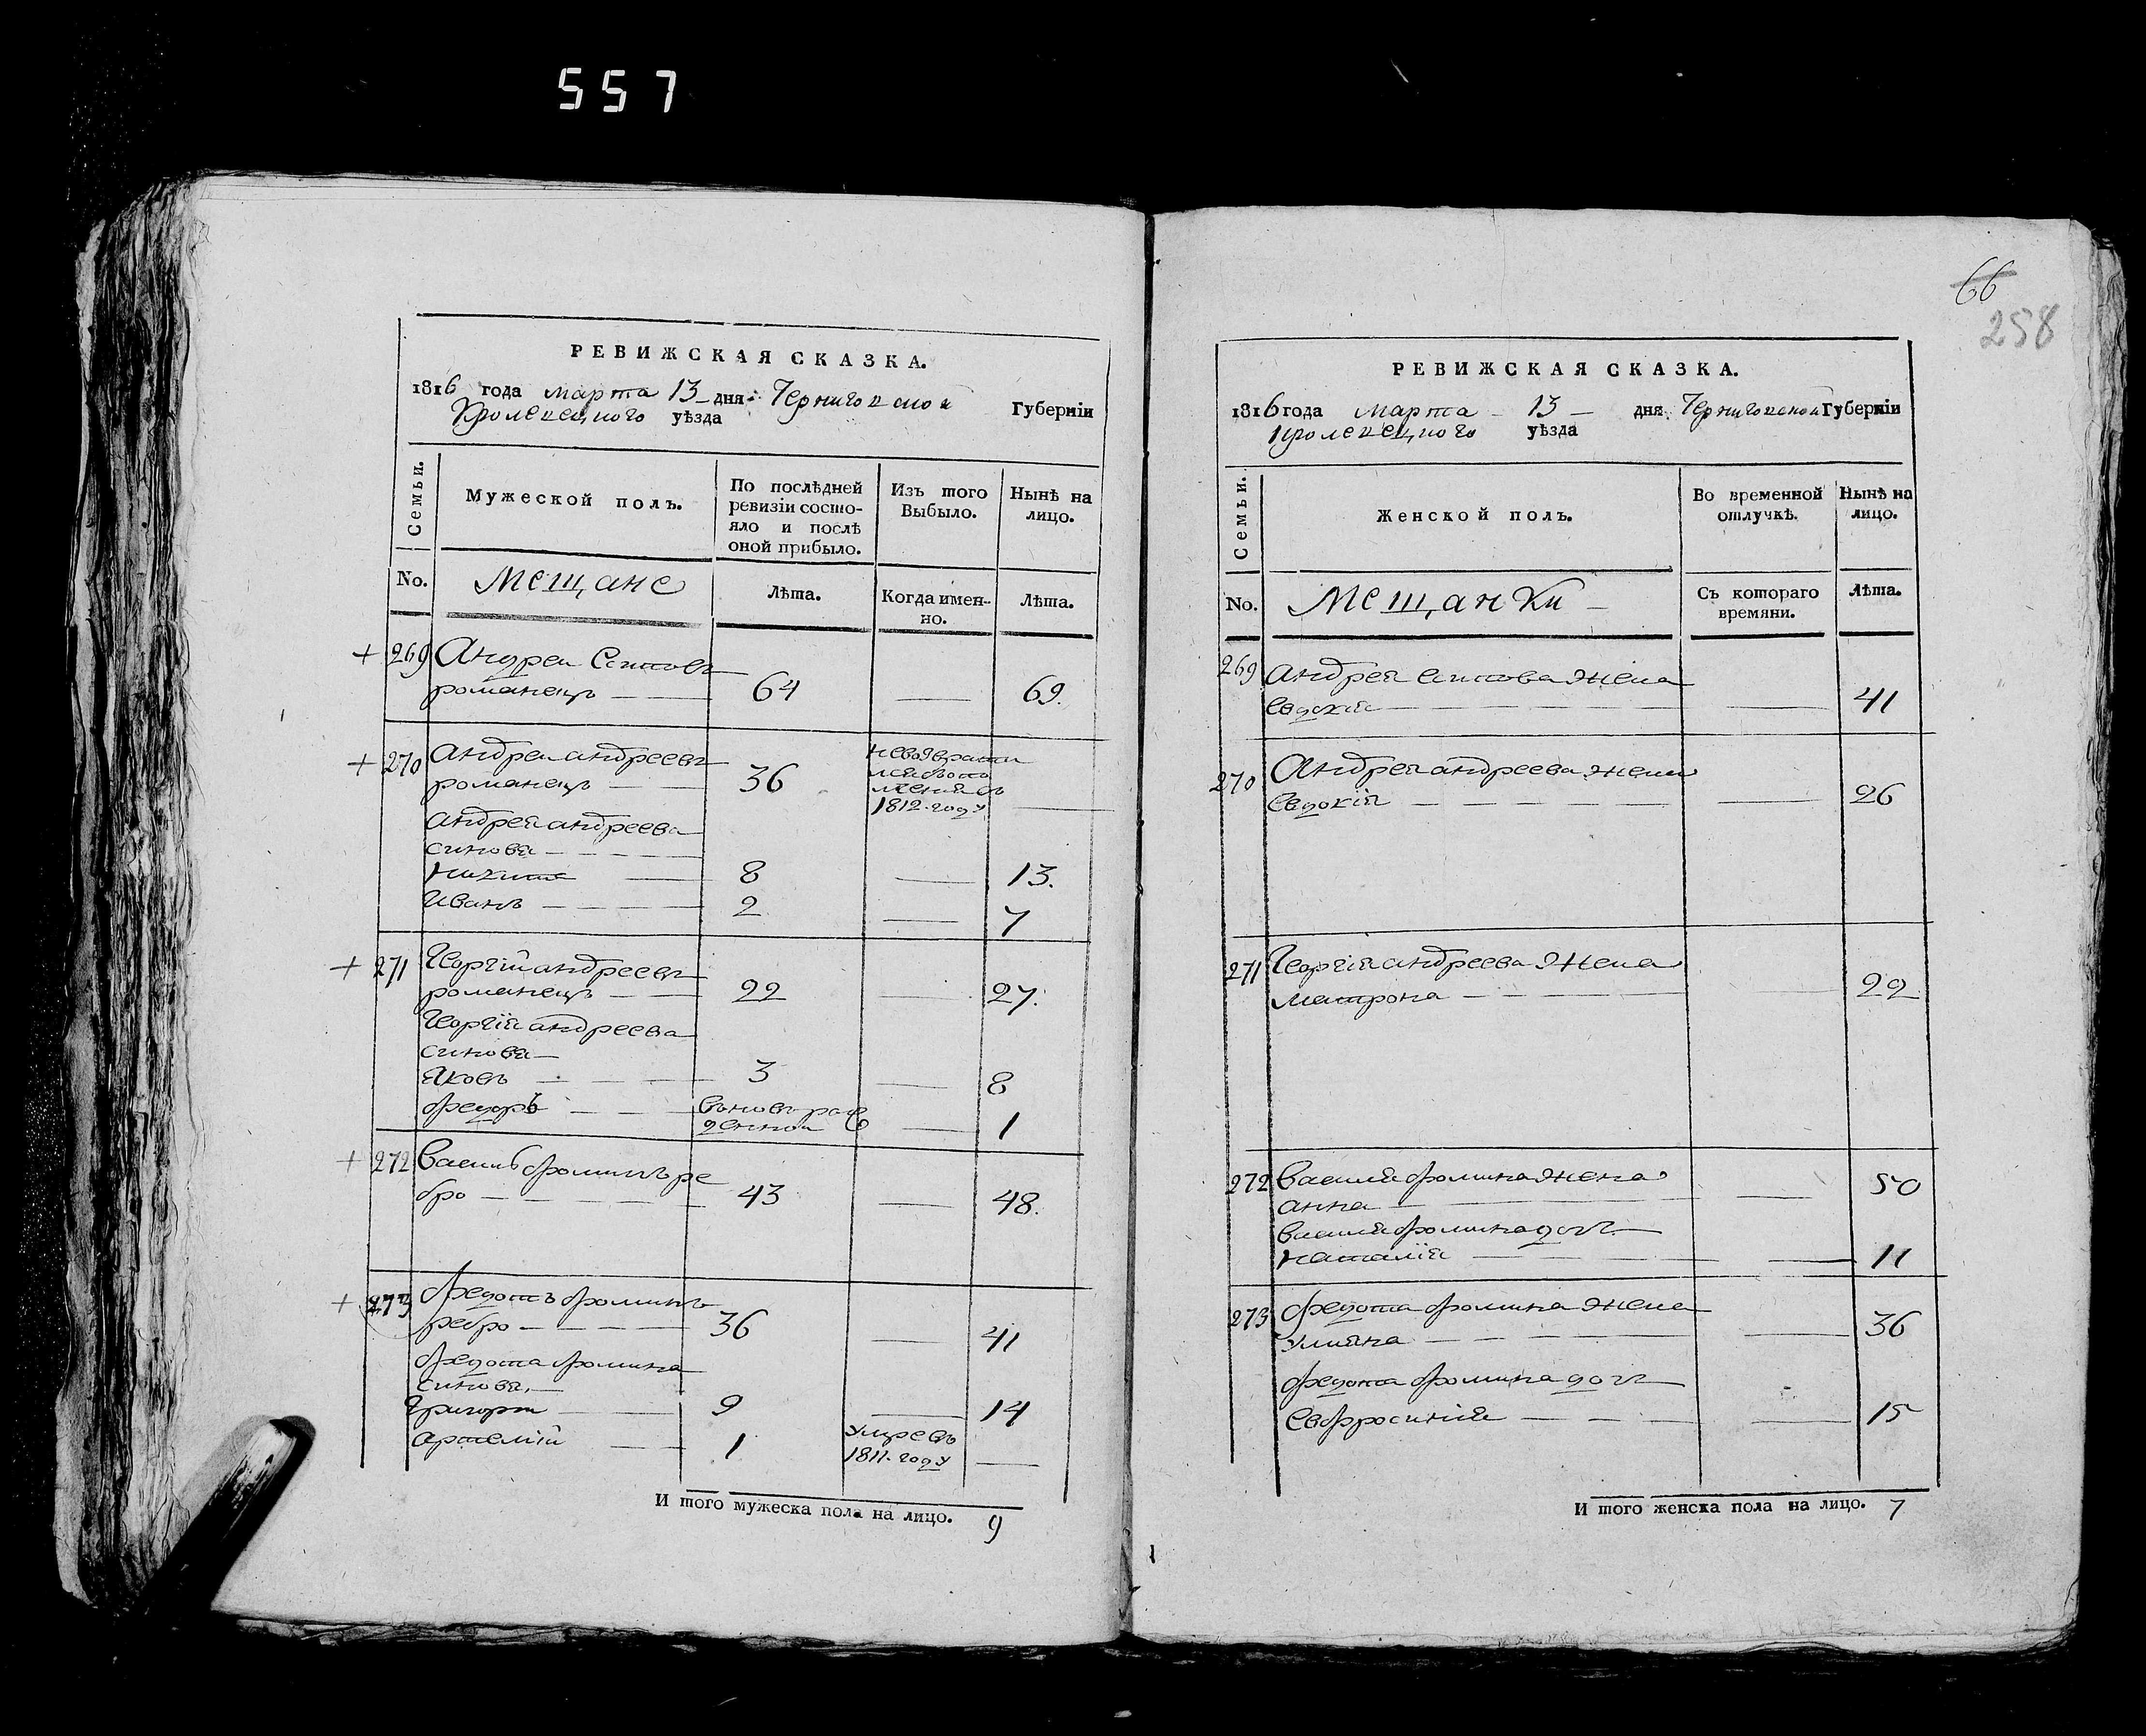 557
РЕВИЖСКАЯ СКАЗКА.
1816 года марта 13 дня Черниговской Губерніи
Кролевецкого уѣзда
Семьи.
Мужеской полъ.
По послѣдней ревизіи состо-
яло и послѣ
оной прибыло.
Изъ того
Выбыло.
Нынѣ на
лицо.
No.
Мещане
Лѣта.
Когда имен-
но.
Лѣта.
+ 269 Андреи
романецъ — 64 — 69.
+ 270 Андреи андреевъ
романецъ — 36
невозврати
лся
1812. году —
андрея андреева
синовя —
никита — 8 — 13.
Иванъ — 2 — 7
+ 271 Георгій андреевъ
романецъ — 22 — 27.
Георгія андреева
синовя —
Яковъ — 3 — 8
федоръ — вновь рож
денной — 1
+ 272 Василь фоминъ ре
бро — 43 — 48.
+ 273 федотъ фоминъ
ребро — 36 — 41
федота фомина
синовя. —
Григори — 9 — 14
артемій — 1
Умре въ
1811. году —
И того мужеска пола на лицо. 9
66
258
РЕВИЖСКАЯ СКАЗКА.
1816 года марта — 13 — дня Черниговской Губерніи
Кролевецкого уѣзда
Семьи.
Женской полъ.
Во временной
отлучкѣ.
Нынѣ на
лицо.
No.
Мещанки —
Съ котораго
времяни.
Лѣта.
269 Андрея жена
Евдокія — 41
270 Андрея андреева жена
Евдокія — 26
271 Георгія андреева жена
матрона — 22
272 Василя фомина жена
анна — 50
василя фомина дочь
наталія — 11
273 федота фомина жена
улияна — 36
федота фомина дочь
Евфросинія — 15
И того женска пола на лицо. 7